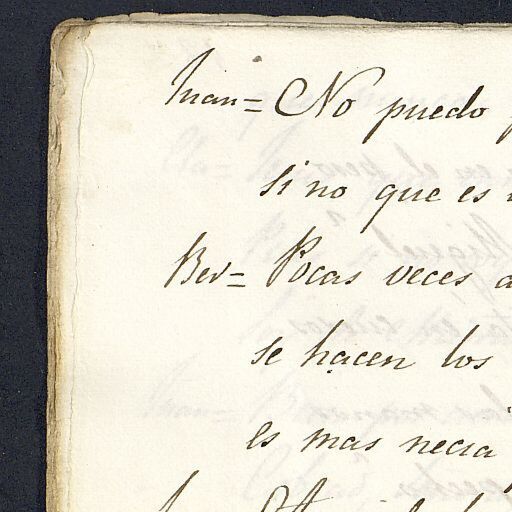 Juan= No puedo
sino que es
Ber= Pocas veces
se hacen los
es mas necia